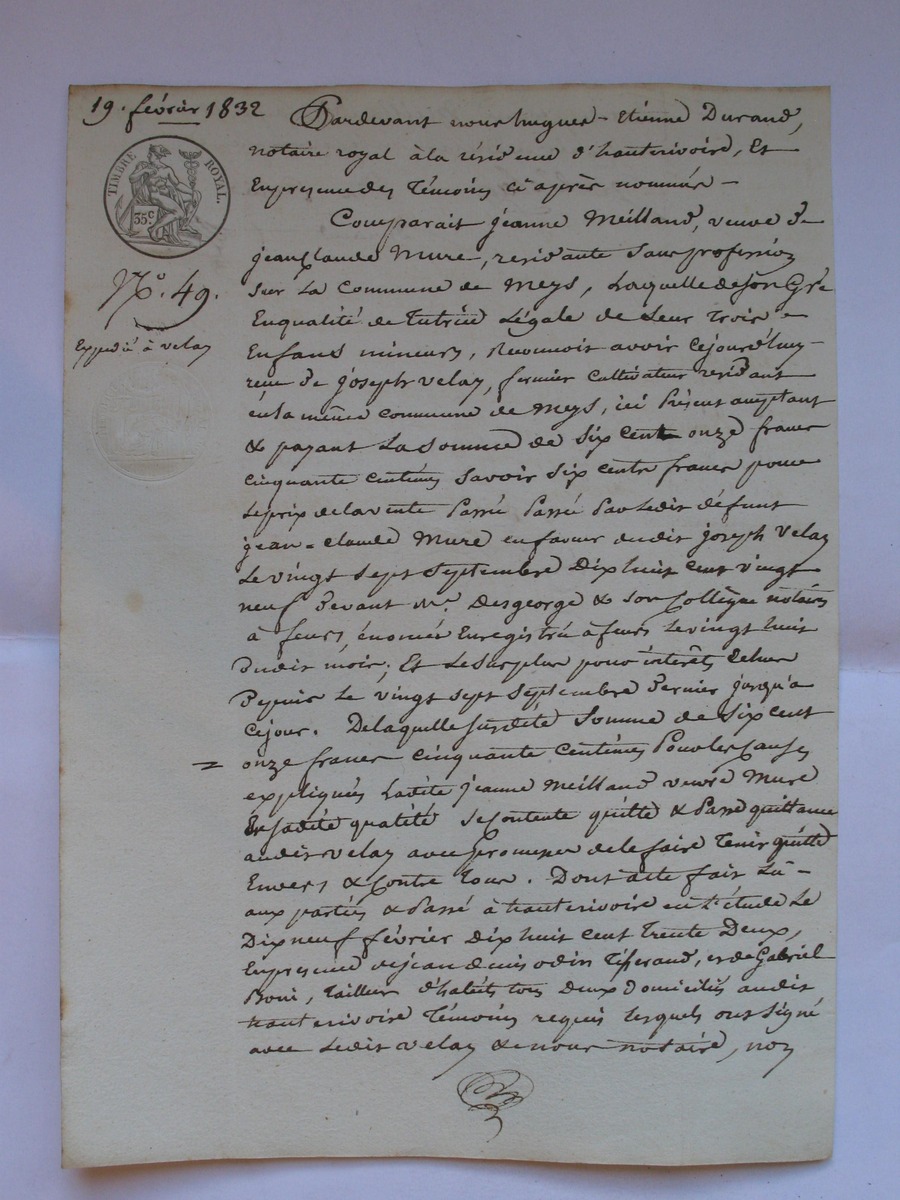 19. février 1832
TIMBRE ROYAL.
35 c
N° 49.
Expédié à velay
Pardevant nous hugues-Etienne Durand,
notaire royal à la résidence d'hauterivoire, Et
En presence des Témoins ci après nommés –
Comparait jeanne Meilland, veuve de
jean Claude Mure, residante sans profession
sur la Commune de Meys, Laquelle de son Gré
En qualité de Tutrice Légale de Leur Trois
Enfans mineurs, Reconnoit avoir cejourd'huy
reçu de joseph velay, fermier cultivateur residant
en la même commune de Meys, ici Présent acceptant
& payant La Somme de Six Cent onze francs
cinquante centimes savoir Six cents francs pour
Le prix de la vente Passée Passée Par Ledit défunt
jean=claude Mure en faveur dudit joseph Velay
Le vingt Sept Septembre Dix huit Cent vingt
neuf Devant Mr. Desgeorge & son Collègue notaires
à feurs, énoncée Enregistrée à feurs Le vingt huit
dudit mois; Et Le Surplus pour interêts échus
Depuis Le vingt Sept Septembre Dernier jusqu'à
Cejour. De laquelle Susdite Somme de Six Cent
= onze francs cinquante Centimes Pour Les Causes
expliquées Ladite jeanne Meilland veuve Mure
En Sadite qualité Se Contente quitte & Passe quittance
audit velay avec Promesse de le faire Tenir quitte
Envers & Contre Tous. Dont acte fait Lû –
aux parties & Passé à hauterivoire en L'étude Le
Dix neuf février Dix huit Cent Trente Deux,
En presence de jean denis odin Tisserand, et de Gabriel
Boni, Tailleur d'habits tous Deux Domiciliés audit
hauterivoire Témoins requis Lesquels ont Signé
avec Ledit velay & nous notaire, non